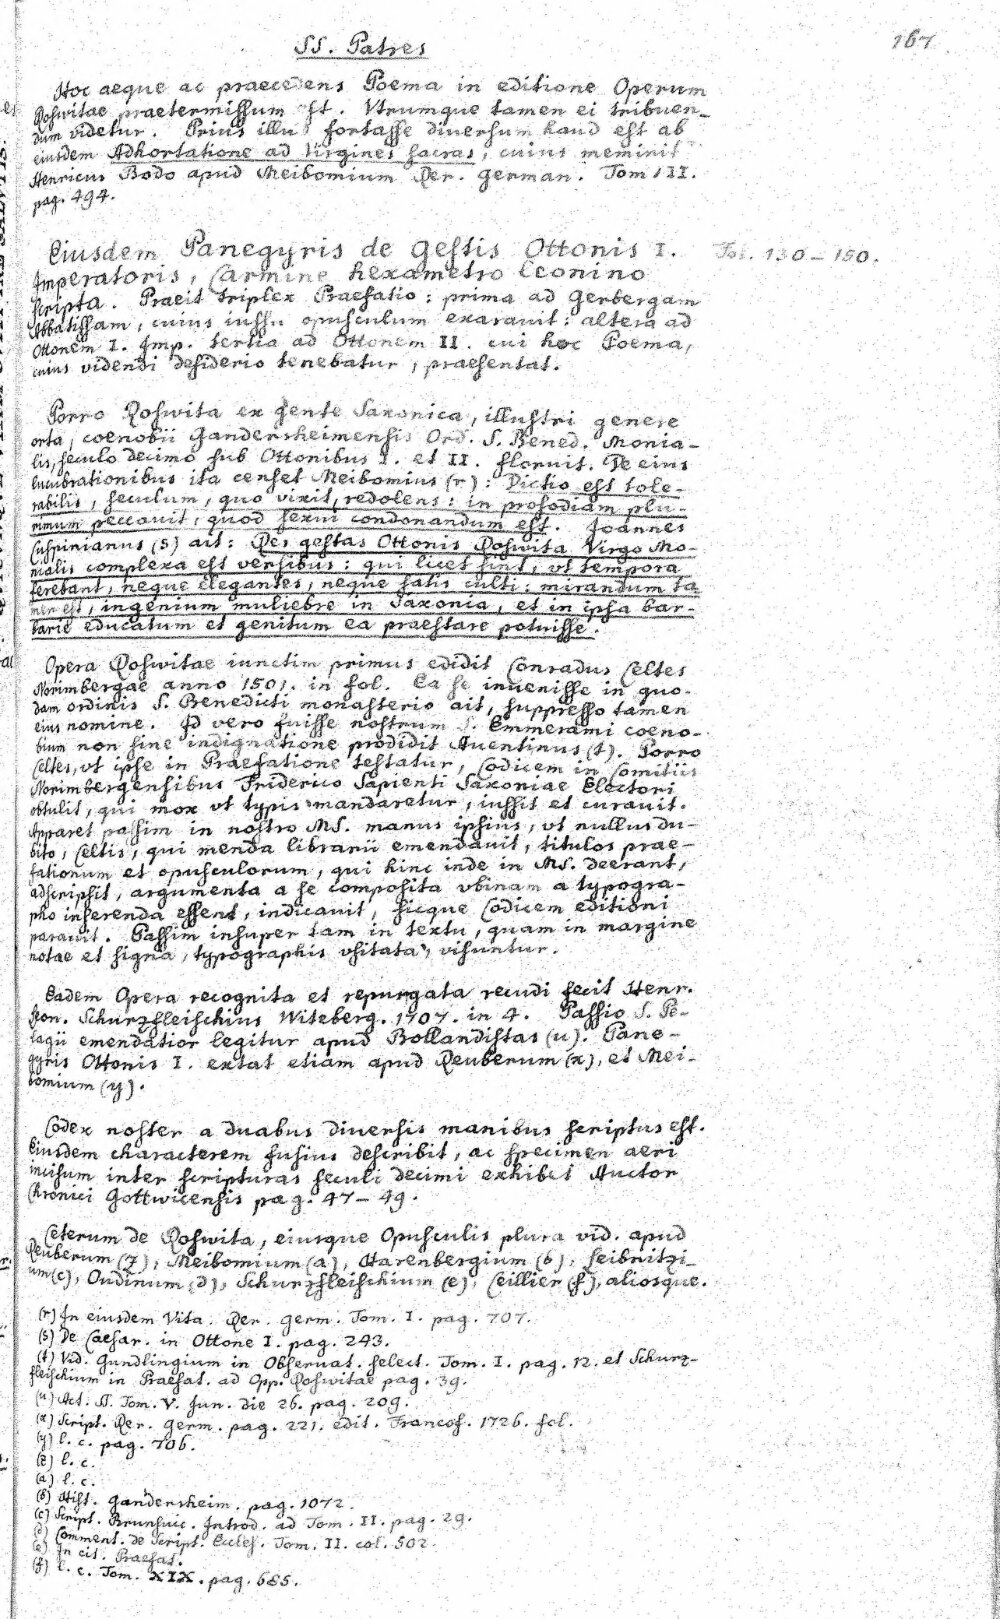 SS. Patres
167
Hoc aeque ac praecedens Poema in editione Operum
Roswitae praetermissum est. Vtrumque tamen ei tribuen-
dum videtur. Prius illud fortasse diuersum haud est ab
eiusdem Adhortatione ad Virgines sacras, cuius meminit
Henricus Bodo apud Meibomium Rer. German. Tom III.
pag. 494.
Eiusdem Panegyris de gestis Ottonis I. Fol. 130-150.
Imperatoris, Carmine hexametro Leonino
scripta. Praeit triplex Praefatio: prima ad Gerbergam
Abbatissam, cuius iussu opusculum exarauit: altera ad
Ottonem I. Imp. tertia ad Ottonem II. cui hoc Poema,
cuius videndi desiderio tenebatur, praesentat.
Porro Roswita ex gente Saxonica, illustri genere
orta, coenobii Gandersheimensis Ord. S. Bened. Monia-
lis, seculo decimo sub Ottonibus I. et II. floruit. De eius
lucubrationibus ita censet Meibomius (r): Dictio est tole-
rabilis, seculum, quo vixit, redolens: in prosodiam plu-
rimum peccauit, quod sexui condonandum est. Joannes
Cuspinianus (s) ait: Res gestas Ottonis Roswita Virgo Mo-
nialis complexa est versibus: qui licet sint, vt tempora
ferebant, neque elegantes, neque satis culti: mirandum ta
men est, ingenium muliebre in Saxonia, et in ipsa bar-
barie educatum et genitum ea praestare potuisse.
Opera Roswitae iunctim primus edidit Conradus Celtes
Norimbergae anno 1501. in fol. Ea se inuenisse in quo-
dam ordinis S. Benedicti monasterio ait, suppresso tamen
eius nomine. Id vero fuisse nostrum S. Emmerami coeno-
bium non sine indignatione prodidit Auentinus (t). Porro
Celtes, vt ipse in Praefatione testatur, Codicem in Comitiis
Norimbergensibus Friderico Sapienti Saxoniae Electori
obtulit, qui mox vt typis mandaretur, iussit et curauit.
Apparet passim in nostro MS. manus ipsius, vt nullus du-
bito, Celtis, qui menda librarii emendauit, titulos prae-
fationum et opusculorum, qui hinc inde in MS. deerant,
adscripsit, argumenta a se composita vbinam a typogra-
pho inserenda essent, indicauit, sicque Codicem editioni
parauit. Passim insuper tam in textu, quam in margine
notae et signa, typographis vsitata, visuntur.
Eadem Opera recognita et repurgata recudi fecit Henr.
Leon. Schurzfleischius Witeberg. 1707. in 4. Passio S. Pe-
lagii emendatior legitur apud Bollandistas (u). Pane-
gyris Ottonis I. extat etiam apud Reuberum (x), et Mei-
bomium (y).
Codex noster a duabus diuersis manibus scriptus est.
Eiusdem characterem fusius describit, ac specimen aeri
incisum inter scripturas seculi decimi exhibet Auctor
Chronici Gottwicensis pag. 47-49.
Ceterum de Roswita, eiusque Opusculis plura vid. apud
Reuberum (z), Meibomium (a), Harenbergium (b), Leibnitzi-
um (c), Oudinum (d), Schurzfleischium (e), Ceillier (f), aliosque.
(r) In eiusdem Vita. Rer. germ. Tom. I. pag. 707.
(s) De Caesar. in Ottone I. pag. 243.
(t) Vid. Gundlingium in Obseruat. select. Tom. I. pag. 12. et Schurz-
fleischium in Praefat. ad Opp. Roswitae pag. 39.
(u) Act. SS. Tom. V. Jun. die 26. pag. 209.
(x) Script. Rer. Germ. pag. 221. edit. Francof. 1726. fol.
(y) l. c. pag. 706.
(z) l. c.
(a) l. c.
(b) Hist. Gandersheim. pag. 1072.
(c) Script. Brunsuic. Introd. ad Tom. II. pag. 29.
(d) Comment. de Script. Eccles. Tom. II. col. 502.
(e) In cit. Praefat.
(f) l. c. Tom. XIX. pag. 685.